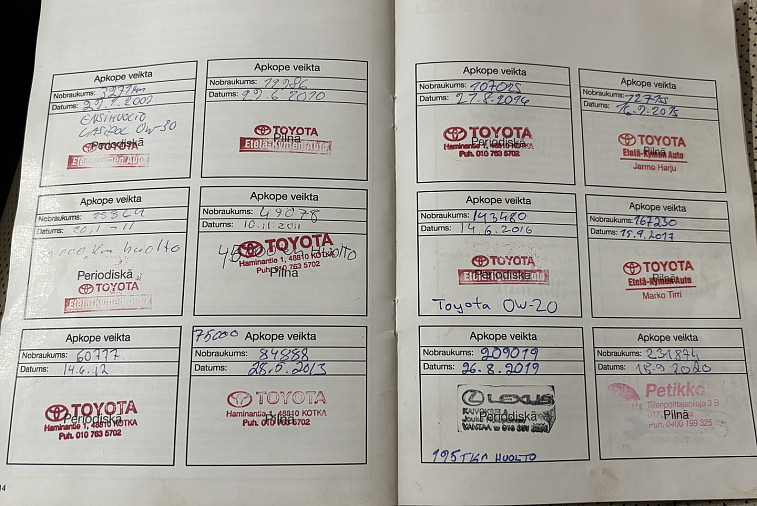 Apkope veikta
Nobraukums: 3271km
Datums:
ENSIHUOLTO
CASTROL 0W-30
Periodiskā
TOYOTA
Etelä-Kymen Auto
Apkope veikta
Nobraukums: 19286
Datums: 29.6.2010
TOYOTA
Pilnā
Etelä-Kymen Auto
Apkope veikta
Nobraukums:
Datums: 20.1-11
km huolto
Periodiskā
TOYOTA
Etelä-Kymen Auto
Apkope veikta
Nobraukums: 49078
Datums: 10.11.2011
TOYOTA
Haminantie 1, 48810 KOTKA
Pilnā
Puh. 010 763 5702
Apkope veikta
Nobraukums: 60777
Datums: 14.6.12
TOYOTA
Periodiskā
Haminantie 1, 48810 KOTKA
Puh. 010 763 5702
75000 Apkope veikta
Nobraukums: 84888
Datums: 28.5.2013
TOYOTA
Haminantie 1, 48810 KOTKA
Pilnā
Puh. 010 763 5702
Apkope veikta
Nobraukums: 107025
Datums: 27.8.2014
TOYOTA
Periodiskā
Haminantie 1, 48810 KOTKA
Puh. 010 763 5702
Apkope veikta
Nobraukums: 127155
Datums: 16.9.2015
TOYOTA
Pilnā
Etelä-Kymen Auto
Jarmo Harju
Apkope veikta
Nobraukums: 143480
Datums: 14.6.2016
TOYOTA
Periodiskā
Etelä-Kymen Auto
Toyota 0W-20
Apkope veikta
Nobraukums: 167230
Datums: 15.9.2017
TOYOTA
Pilnā
Etelä-Kymen Auto
Marko Tirri
Apkope veikta
Nobraukums: 209019
Datums: 26.8.2019
LEXUS
KAIVOKSELA
Periodiskā
VANTAA
195TKM HUOLTO
Apkope veikta
Nobraukums: 231874
Datums: 18.9.2020
Petikko
Tiilenpolttajankuja 3 B
Pilnā
Puh. 0400 199 325
14